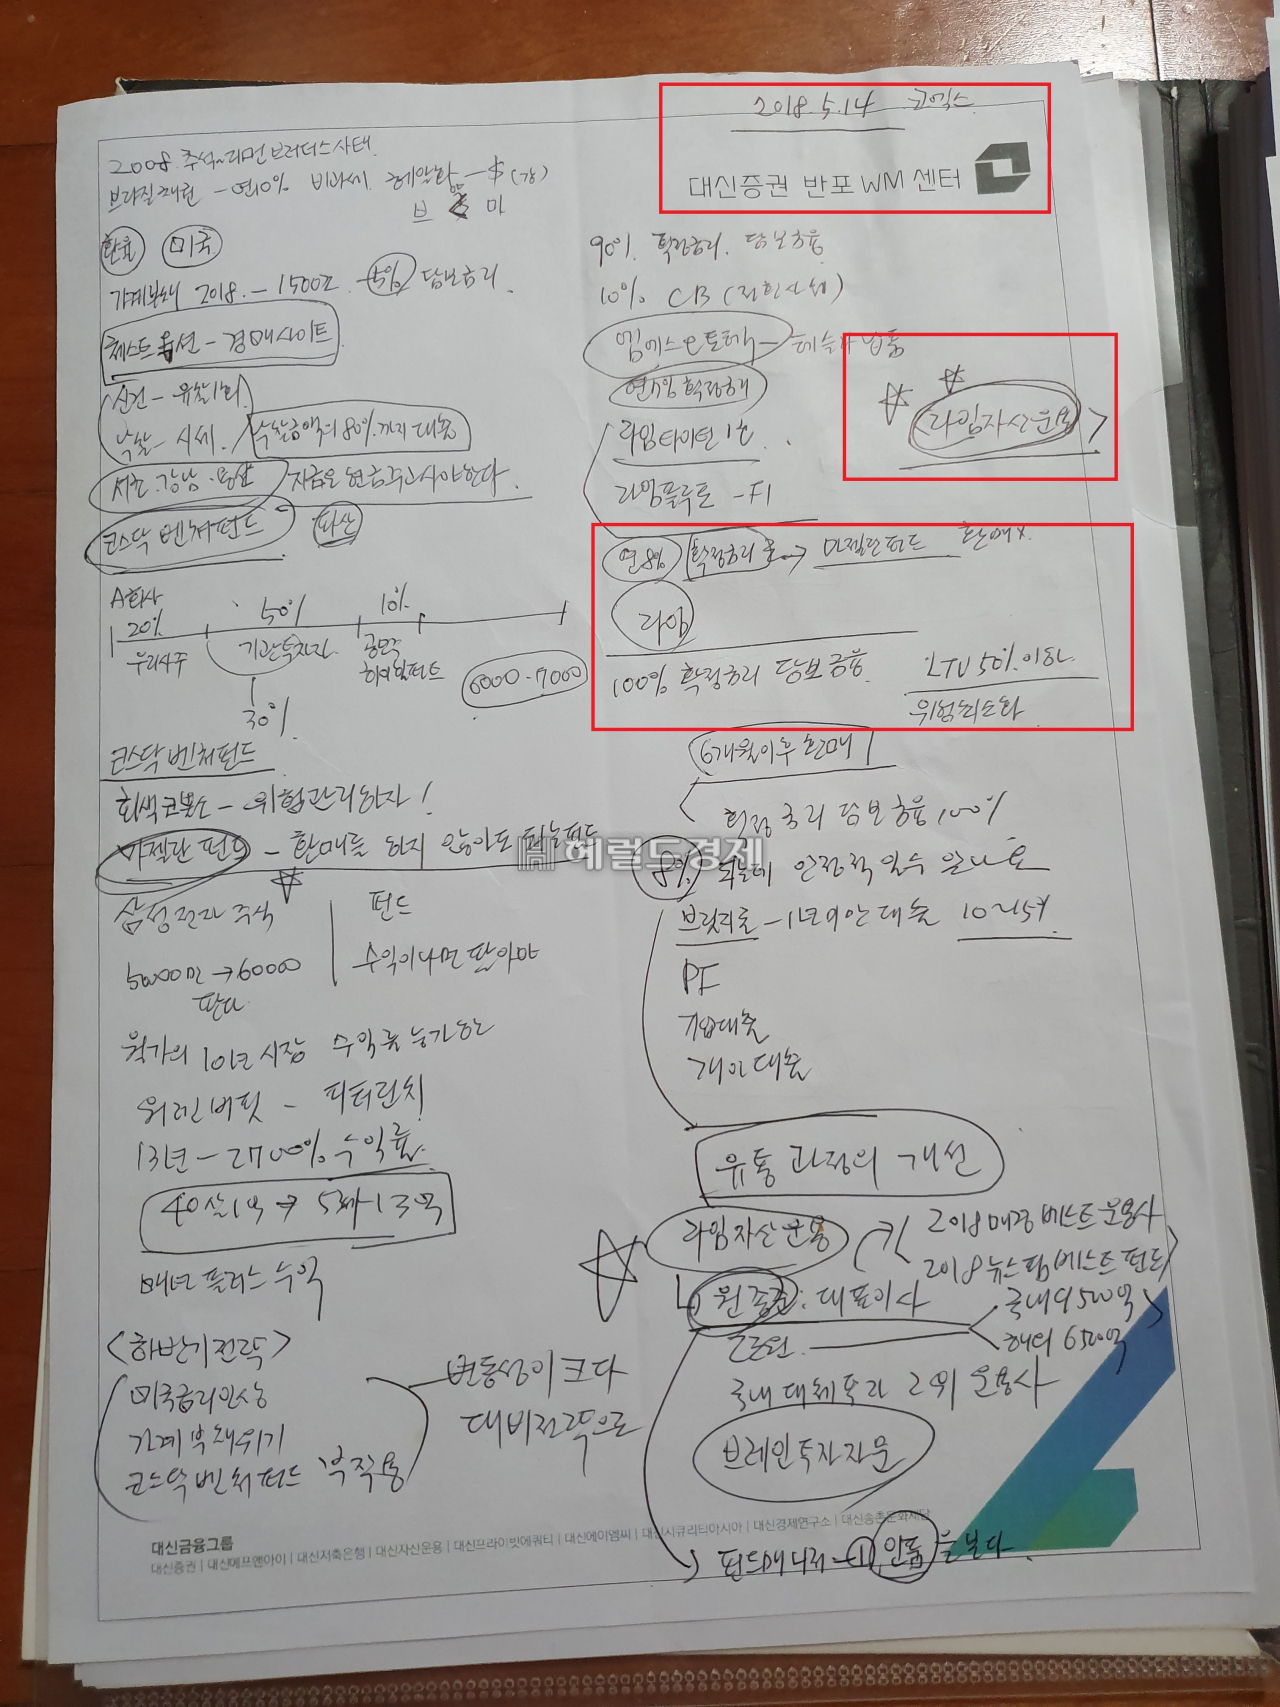 2018.5.14 코엑스
대신증권 반포 WM 센터
2008. 추석~리먼브러더스사태.
브라질채권 - 연10% 비과세. 헤알화 - $ (강)
브 미
환율 미국
가계부채 2018. - 1500조 - 5% 담보금리
체스트옥션 - 경매사이트
신건 - 유찰1회.
낙찰 - 시세. 낙찰금액의 80%까지 대출
서초.강남.용산 지금은 현금주고사야한다.
코스닥벤처펀드 파산
A회사
20% 50% 10%
우리사주 기관투자자 공모주
하이일펀드
6000-7000
30%
코스닥벤처펀드
회색코뿔소 - 위험관리하자!
마젤란펀드 - 환매를 하지 않아도 되는펀드
삼성전자 주식 펀드
50000만→60000 수익이나면 팔아야
판다
월가의 10년 시장 수익률 능가하는
워렌버핏 - 피터린치!
13년 - 2700% 수익률.
40살1억 → 53세-13억
매년 플러스 수익
<하반기전략>
미국금리인상
가계부채위기
코스닥벤처펀드 부작용
변동성이 크다
대비전략으로
90% 확정금리. 담보금융
10% CB (전환사채)
엠에스오토텍 - 테슬라 납품
연4% 확정형
라임타이탄 1호
라임플루토 - F1
라임자산운용
연8% 확정금리로 → 마젤란펀드 환매x
라임
100% 확정금리 담보금융. LTV 50%이하.
위험최소화
6개월이후 환매!
확정금리 담보금융 100%
8% 되는데 안정적 일수 있나요
브릿지론 - 1년미만대출 10~15%
PF
기업대출
개인대출
유통 과정의 개선
라임자산운용 2018매경베스트운용사
2018뉴스핌베스트펀드
원종준: 대표이사 국내외 500억
2조원. 해외 6500억
국내 대체투자 2위 운용사
브레인투자자문
펀드매니저 - ① 인품을 본다.
헤럴드경제
대신금융그룹
대신증권 | 대신에프앤아이 | 대신저축은행 | 대신자산운용 | 대신프라이빗에쿼티 | 대신에이엠씨 | 대신시큐리티아시아 | 대신경제연구소 | 대신송촌문화재단